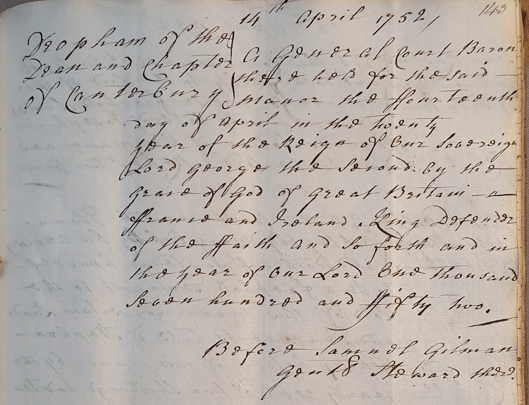 143
14th April 1752,
Deopham of the
Dean and Chapter
of Canterbury
A General Court Baron
there held for the said
Manor the ffourteenth
day of April in the twenty
year of the Reign of Our Sovereign
Lord George the Second by the
Grace of God of Great Britain
ffrance and Ireland King Defender
of the ffaith and So forth and in
the year of Our Lord One thousand
Seven hundred and ffifty two.
Before Samuel Gilman
Gent Steward there.